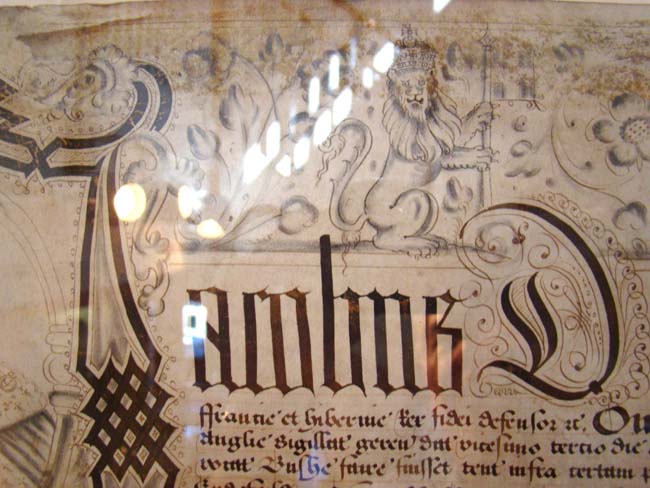 Jacobus D
ffrancie et hibernie Rex fidei defensor &c. Om
Anglie sigillat geren dat vicesimo tercio die
vocat Bushe faire fuisset tent infra certam